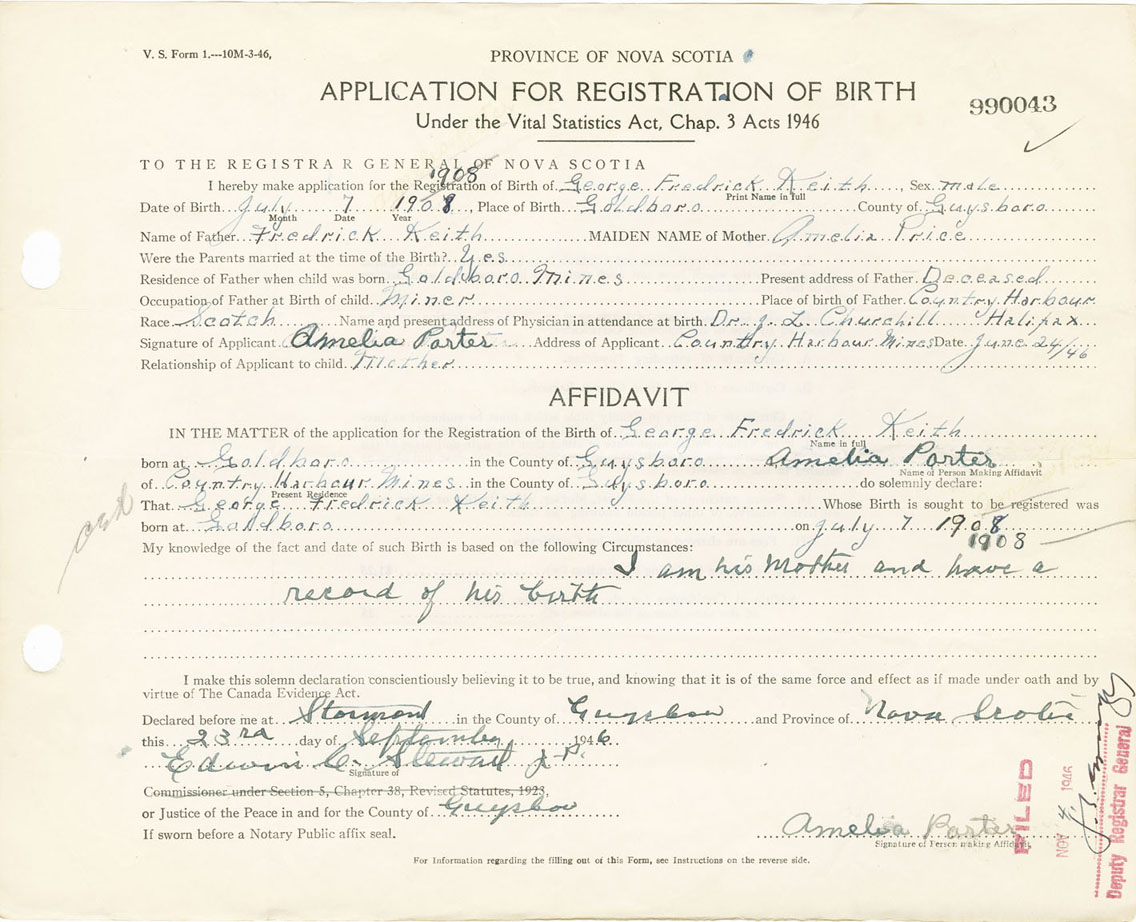 V. S. Form 1.---10M-3-46,
PROVINCE OF NOVA SCOTIA
APPLICATION FOR REGISTRATION OF BIRTH
990043
Under the Vital Statistics Act, Chap. 3 Acts 1946
TO THE REGISTRAR GENERAL OF NOVA SCOTIA
1908
I hereby make application for the Registration of Birth of George Fredrick Keith, Sex male
Print Name in full
Date of Birth July 7 1908, Place of Birth Goldboro County of Guysboro
Month Date Year
Name of Father Fredrick Keith MAIDEN NAME of Mother Amelia Price
Were the Parents married at the time of the Birth? Yes
Residence of Father when child was born Goldboro Mines Present address of Father Deceased
Occupation of Father at Birth of child Miner Place of birth of Father Country Harbour
Race Scotch Name and present address of Physician in attendance at birth Dr. J. L. Churchill Halifax
Signature of Applicant Amelia Porter Address of Applicant Country Harbour Mines Date June 24/46
Relationship of Applicant to child Mother
AFFIDAVIT
IN THE MATTER of the application for the Registration of the Birth of George Fredrick Keith
Name in full
born at Goldboro in the County of Guysboro Amelia Porter
Name of Person Making Affidavit
of Country Harbour Mines in the County of Guysboro do solemnly declare:
Present Residence
That George Fredrick Keith Whose Birth is sought to be registered was
born at Goldboro on July 7 1908
1908
My knowledge of the fact and date of such Birth is based on the following Circumstances:
I am his Mother and have a
record of his birth
I make this solemn declaration conscientiously believing it to be true, and knowing that it is of the same force and effect as if made under oath and by
virtue of The Canada Evidence Act.
Declared before me at Stormont in the County of Guysboro and Province of Nova Scotia
this 23rd day of September 1946
Edwin C. Stewart J.P.
Signature of
Commissioner under Section 5, Chapter 38, Revised Statutes, 1923,
or Justice of the Peace in and for the County of Guysboro
If sworn before a Notary Public affix seal.
Amelia Porter
Signature of Person making Affidavit
For Information regarding the filling out of this Form, see Instructions on the reverse side.
FILED
NOV 4 1946
Deputy Registrar General